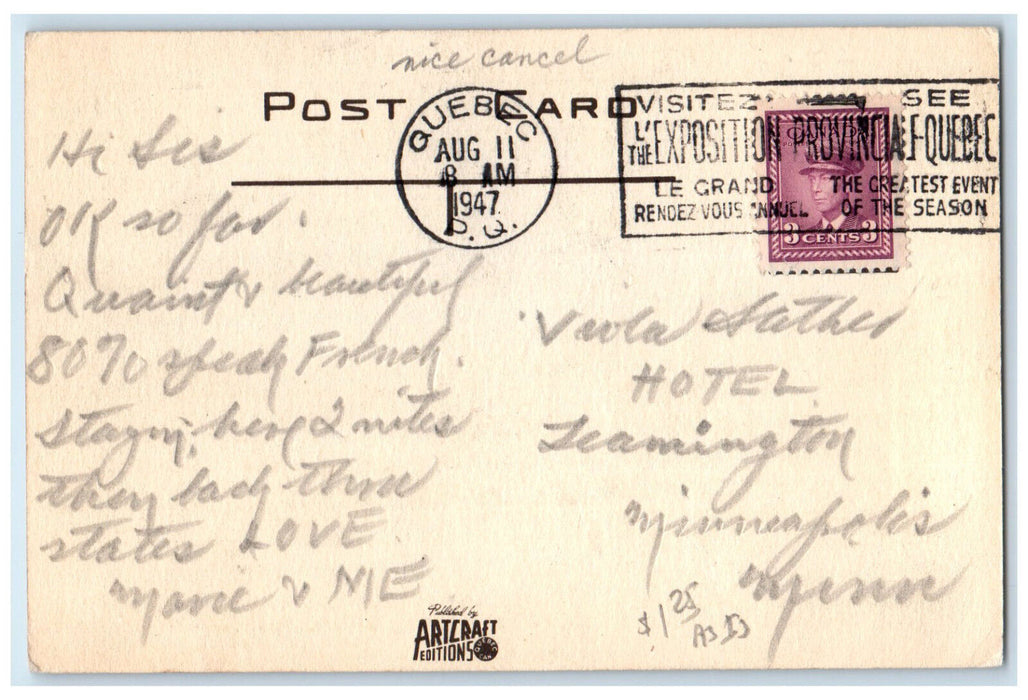 nice cancel
POST CARD
QUEBEC
AUG 11
8 AM
1947
P.Q.
VISITEZ SEE
L'EXPOSITION PROVINCIALE-QUEBEC
THE
LE GRAND THE GREATEST EVENT
RENDEZ-VOUS ANNUEL OF THE SEASON
CANADA
3 CENTS 3
Hi Sis
OK so far.
Quaint & beautiful
80% speak French.
Staying here 2 nites
then back thru
states LOVE
Marie & 
Viola Sather
HOTEL
Leamington
Minneapolis
Minn
Published by
ARTCRAFT
EDITIONS
$1 25
AS IS